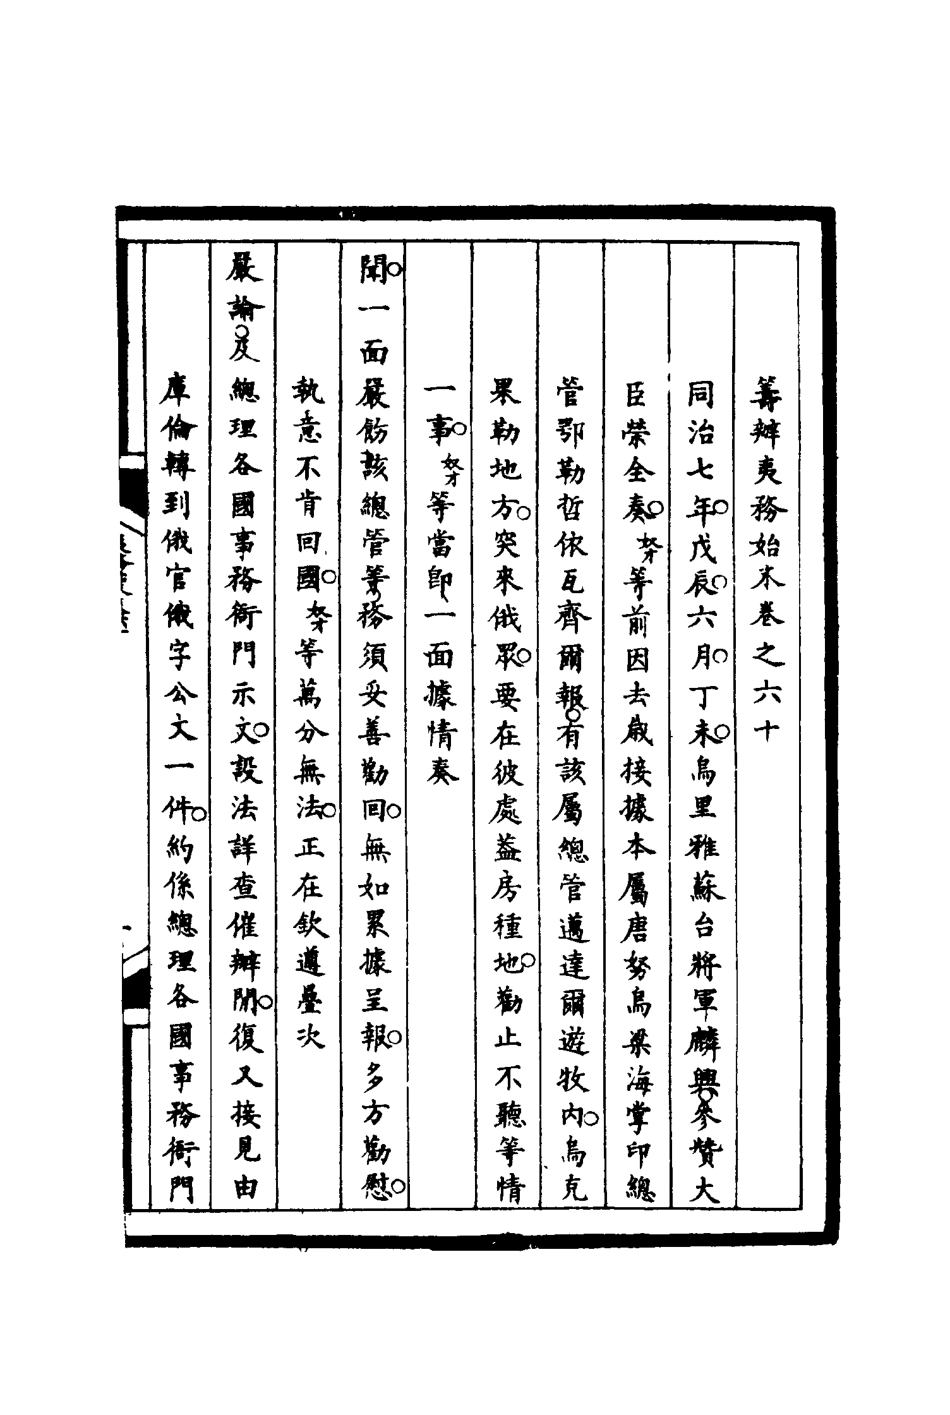 籌辦夷務始末卷之六十
同治七年。戊辰。六月。丁未。烏里雅蘇台將軍麟興。參贊大
臣榮全奏。奴才等前因去歲接據本屬唐努烏梁海掌印總
管鄂勒哲依瓦齊爾報。有該屬總管邁達爾遊牧內。烏克
果勒地方。突來俄眾。要在彼處葢房種地。勸止不聽等情
一事。奴才等當卽一面據情奏
聞。一面嚴飭該總管等務須妥善勸回。無如累據呈報。多方勸慰。
執意不肯回國。奴才等萬分無法。正在欽遵疊次
嚴諭。及總理各國事務衙門示文。設法詳查催辦閒。復又接見由
庫倫轉到俄官俄字公文一件。約係總理各國事務衙門